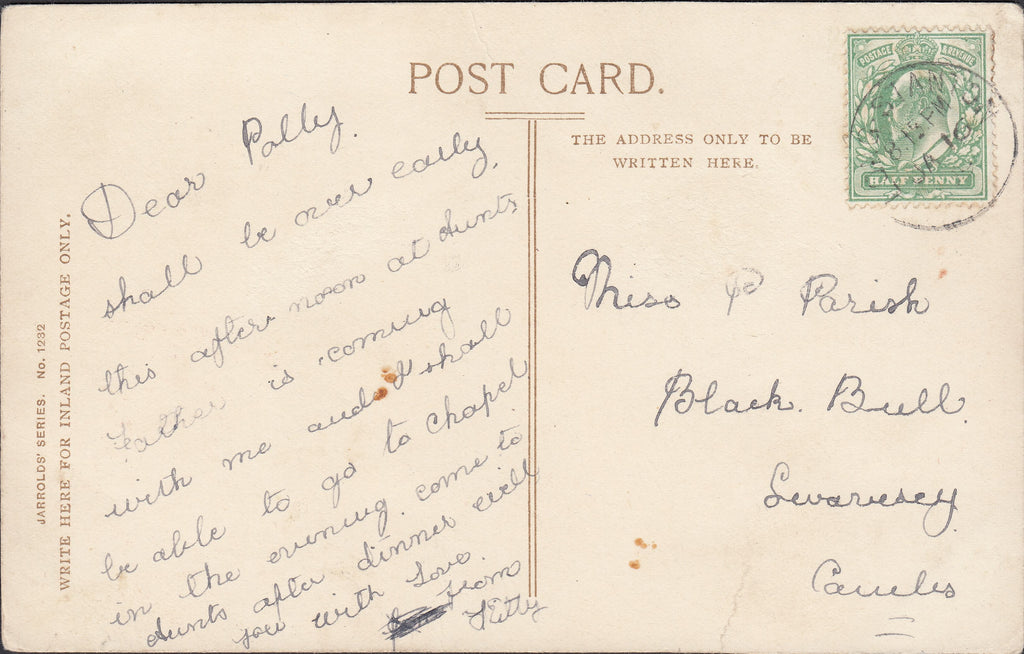 POST CARD.
THE ADDRESS ONLY TO BE
WRITTEN HERE.
POSTAGE & REVENUE
HALF PENNY
JARROLDS' SERIES. No. 1232
WRITE HERE FOR INLAND POSTAGE ONLY.
Dear Polly.
shall be over early,
this after noon at Aunts
Father is coming
with me and I shall
be able to go to Chapel
in the evening. come to
Aunts after dinner will
you with Love.
from
Kitty
Miss P Parish
Black. Bull
Swavesey
Cambs